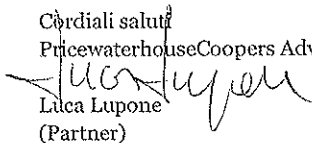 Cordiali saluti
PricewaterhouseCoopers Adv
Luca Lupone
Luca Lupone
(Partner)